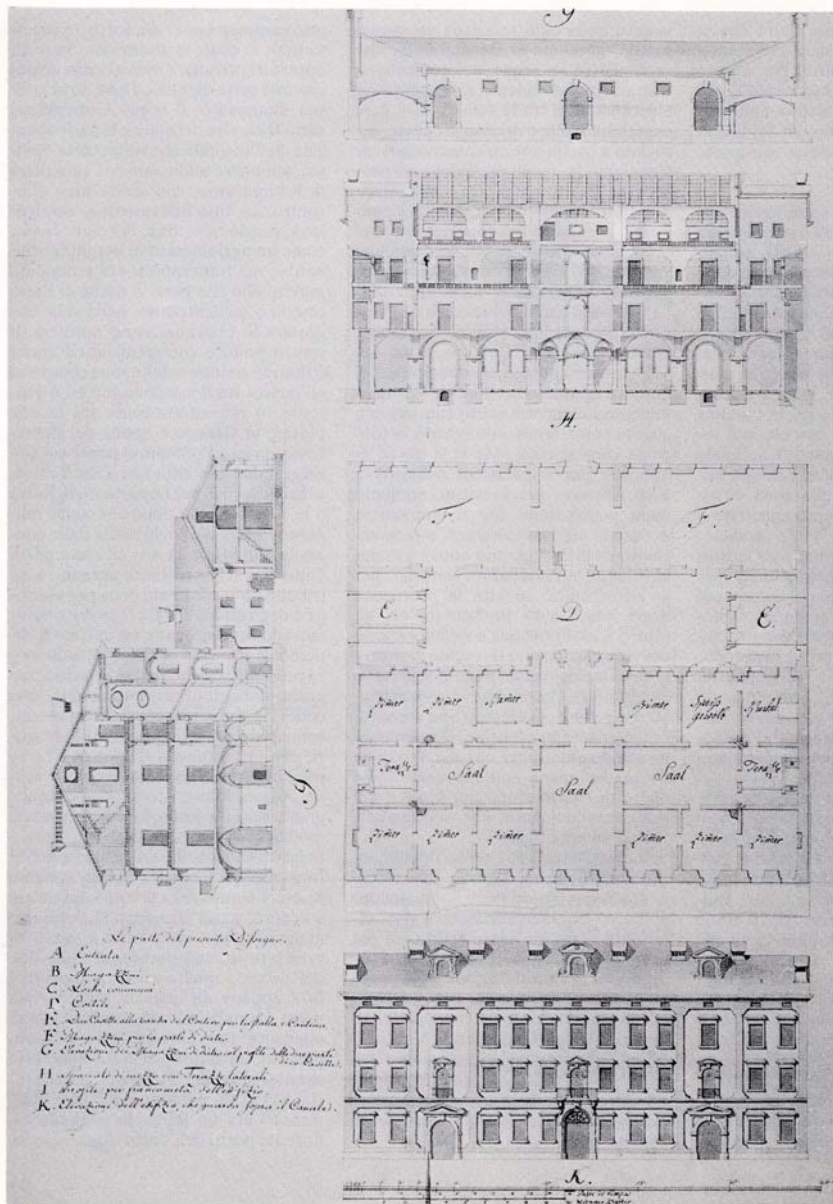 G
H.
F.
F.
E.
D
E.
Zimer
Zimer
Kamer
Zimer
Speiss
gewölb
Kuchel
Teraz
Saal
Saal
Teraz
Saal
Zimer
Zimer
Zimer
Zimer
Zimer
Zimer
J.
Le parti del presente Dissegno.
A Entrata
B Magazzini
C. Lochi communi
D Cortile.
E. Due Casette alla banda del Cortivo per la stalla e Cantina
F. Magazzini per la parte di dietro
G. Elevazione dei Magazzini di dietro col profilo delle due parti
dico Casette.
H Spaccato di mezzo con Terazzi laterali
I Profilo per
dell'edifizio.
K. Elevazione dell'edifizio, che guarda sopra il Canale.
K.